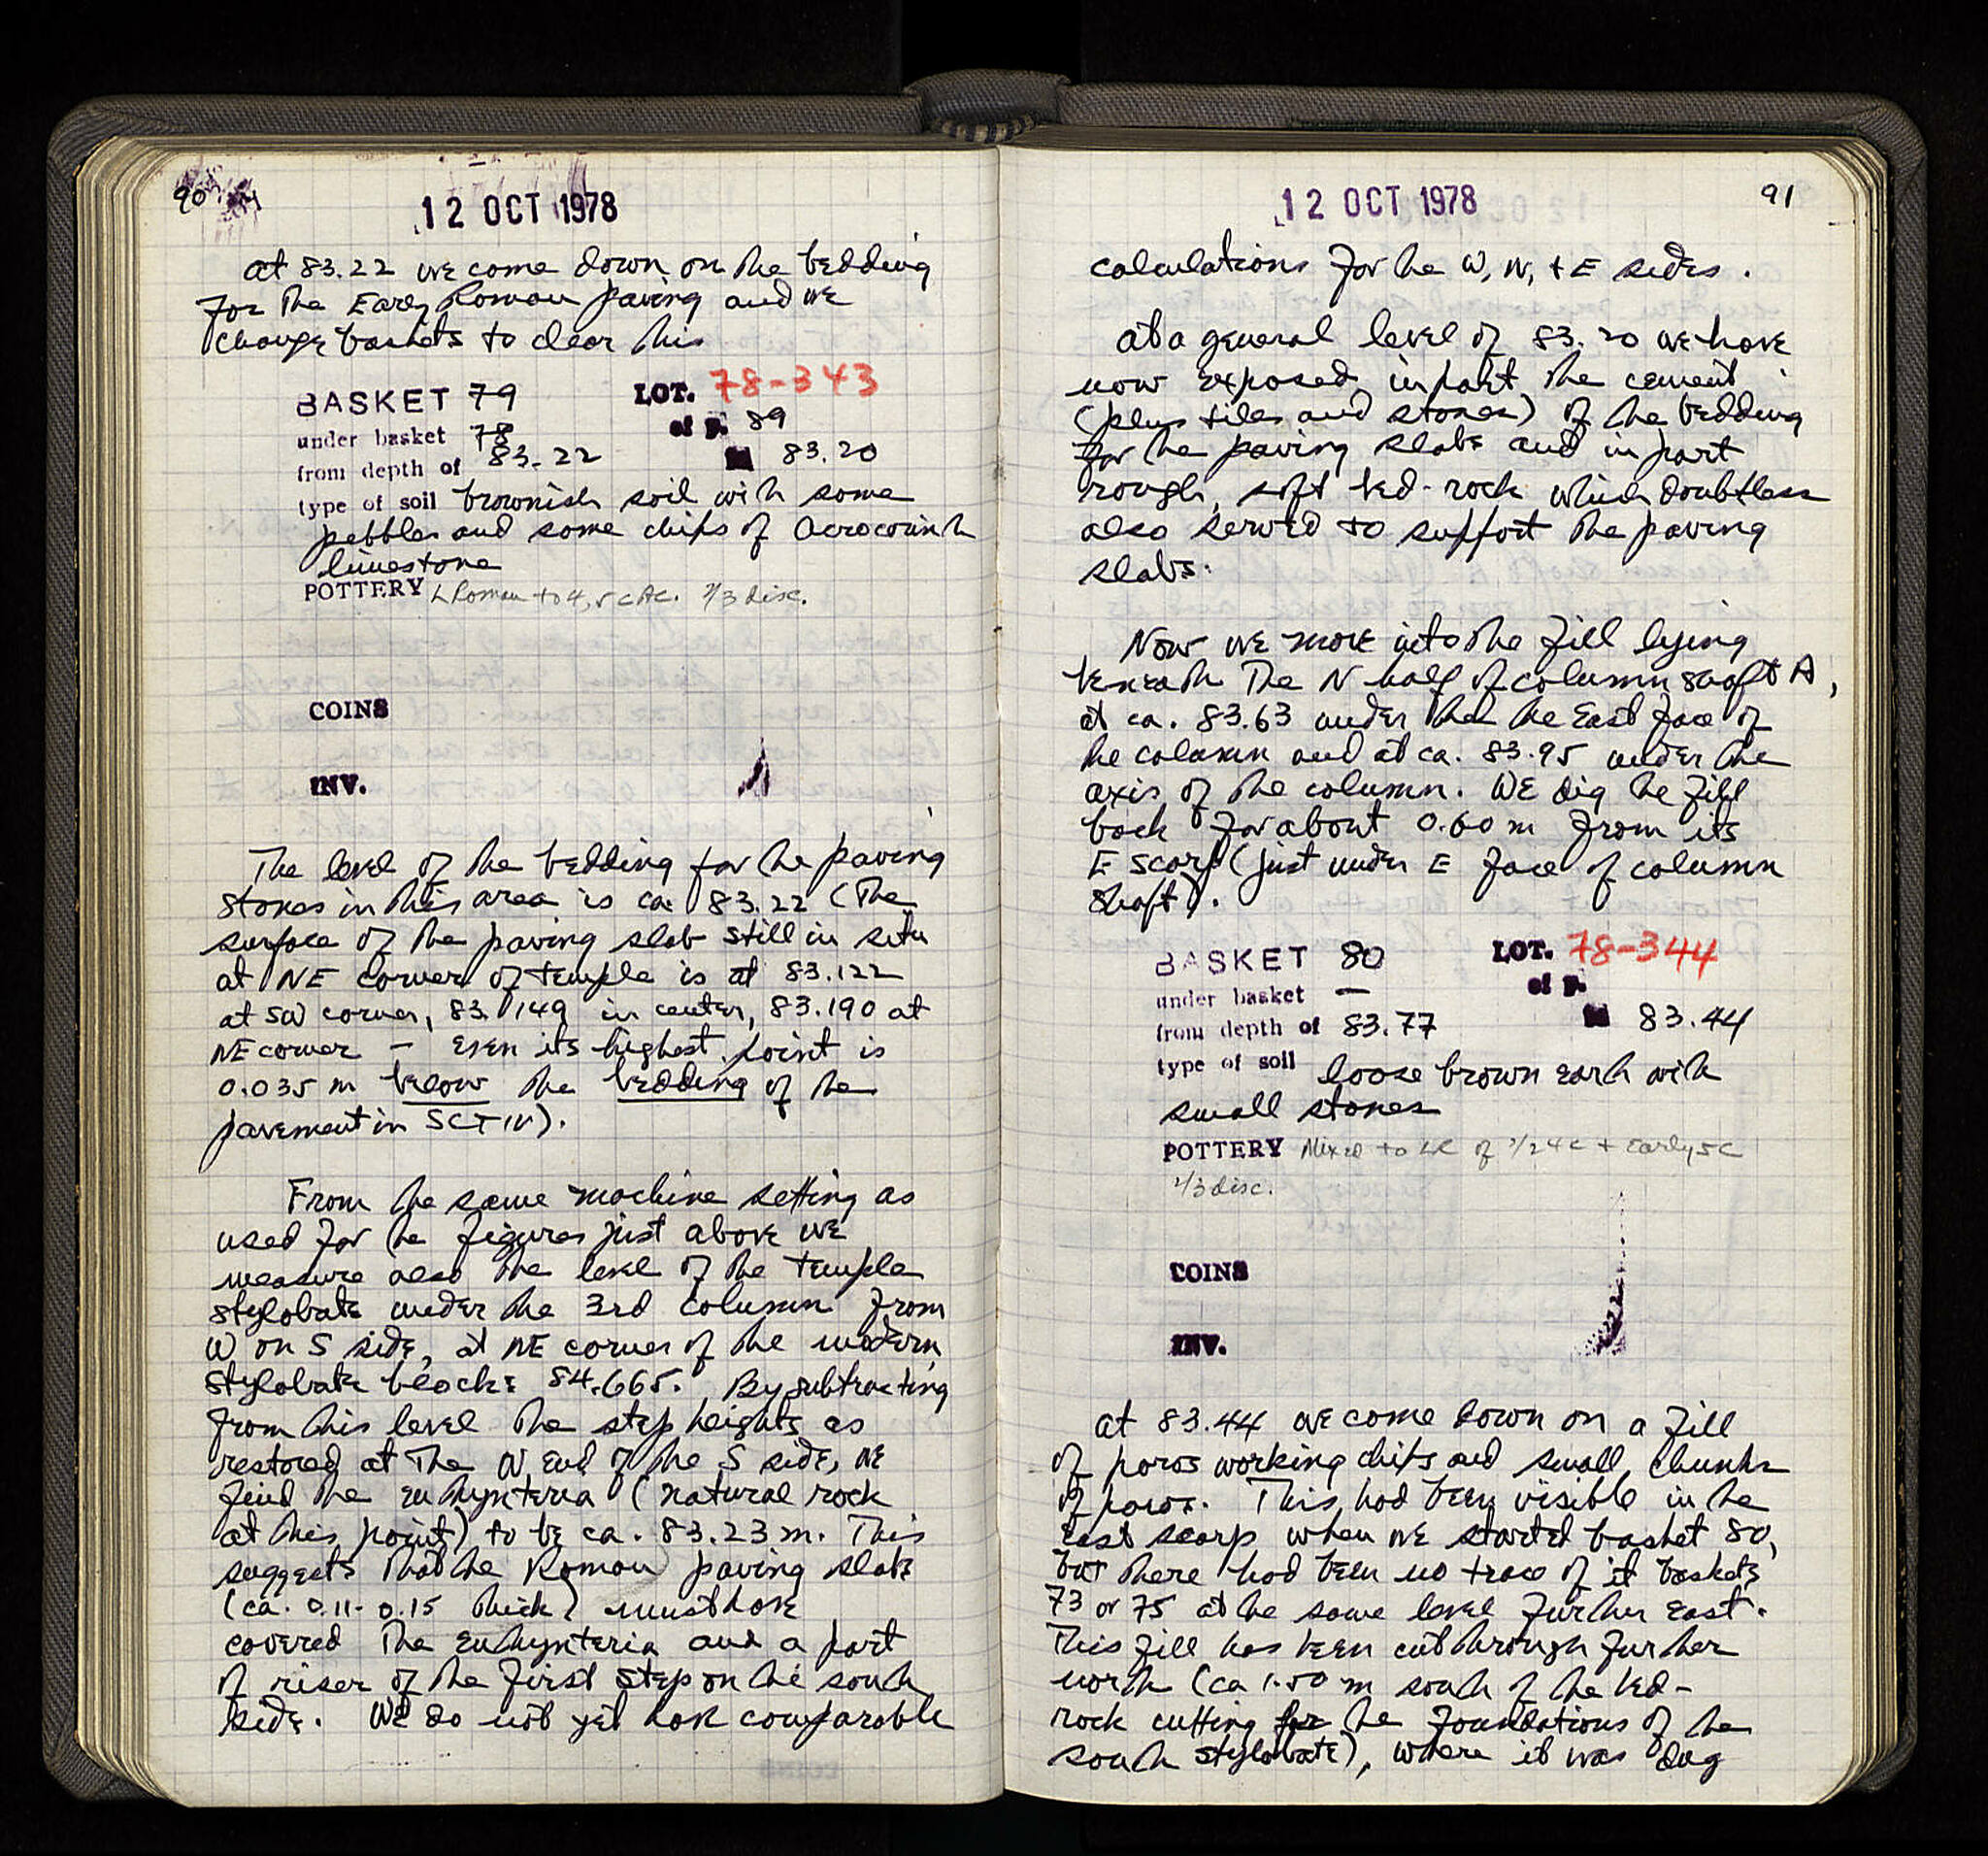 90
12 OCT 1978
at 83.22 we come down on the bedding
for the Early Roman paving and we
change baskets to clear this
BASKET 79 LOT. 78-343
under basket 78 of p. 89
from depth of 83.22 83.20
type of soil brownish soil with some
pebbles and some chips of Acrocorinth
limestone
POTTERY L Roman to 4, 5 c AC. 2/3 disc.
COINS
INV.
The level of the bedding for the paving
stones in this area is ca 83.22 (The
surface of the paving slab still in situ
at NE corner of temple is at 83.122
at SW corner, 83.149 in center, 83.190 at
NE corner – even its highest point is
0.035 m below the bedding of the
pavement in
From the same machine setting as
used for the figures just above we
measure also the level of the temple
stylobate under the 3rd column from
W on S side, at NE corner of the modern
stylobate block: 84.665. By subtracting
from this level the step heights as
restored at the W end of the S side, we
find the euthynteria (natural rock
at this point) to be ca. 83.23 m. This
suggests that the Roman paving slabs
(ca. 0.11-0.15 thick) must have
covered the euthynteria and a part
of riser of the first step on the south
side. We do not yet have comparable
91
12 OCT 1978
calculations for the W, N, + E sides.
at a general level of 83.20 we have
now exposed, in part, the cement
(plus tiles and stones) of the bedding
for the paving slabs and in part
rough, soft bed-rock which doubtless
also served to support the paving
slabs.
Now we move into the fill lying
beneath the N half of column shaft A,
at ca. 83.63 under the East face of
the column and at ca. 83.95 under the
axis of the column. We dig the fill
back for about 0.60 m from its
E scarp (just under E face of column
shaft).
BASKET 80 LOT. 78-344
under basket — of p.
from depth of 83.77 83.44
type of soil loose brown earth with
small stones
POTTERY Mixed to of 2/2 4 c + early 5 c
2/3 disc.
COINS
INV.
at 83.44 we come down on a fill
of poros working chips and small chunks
of poros. This had been visible in the
east scarp when we started basket 80,
but there had been no trace of it baskets
73 or 75 at the same level further East.
This fill has been cut through further
north (ca 1.50 m south of the bed-
rock cutting for the foundations of the
south stylobate), where it was dug